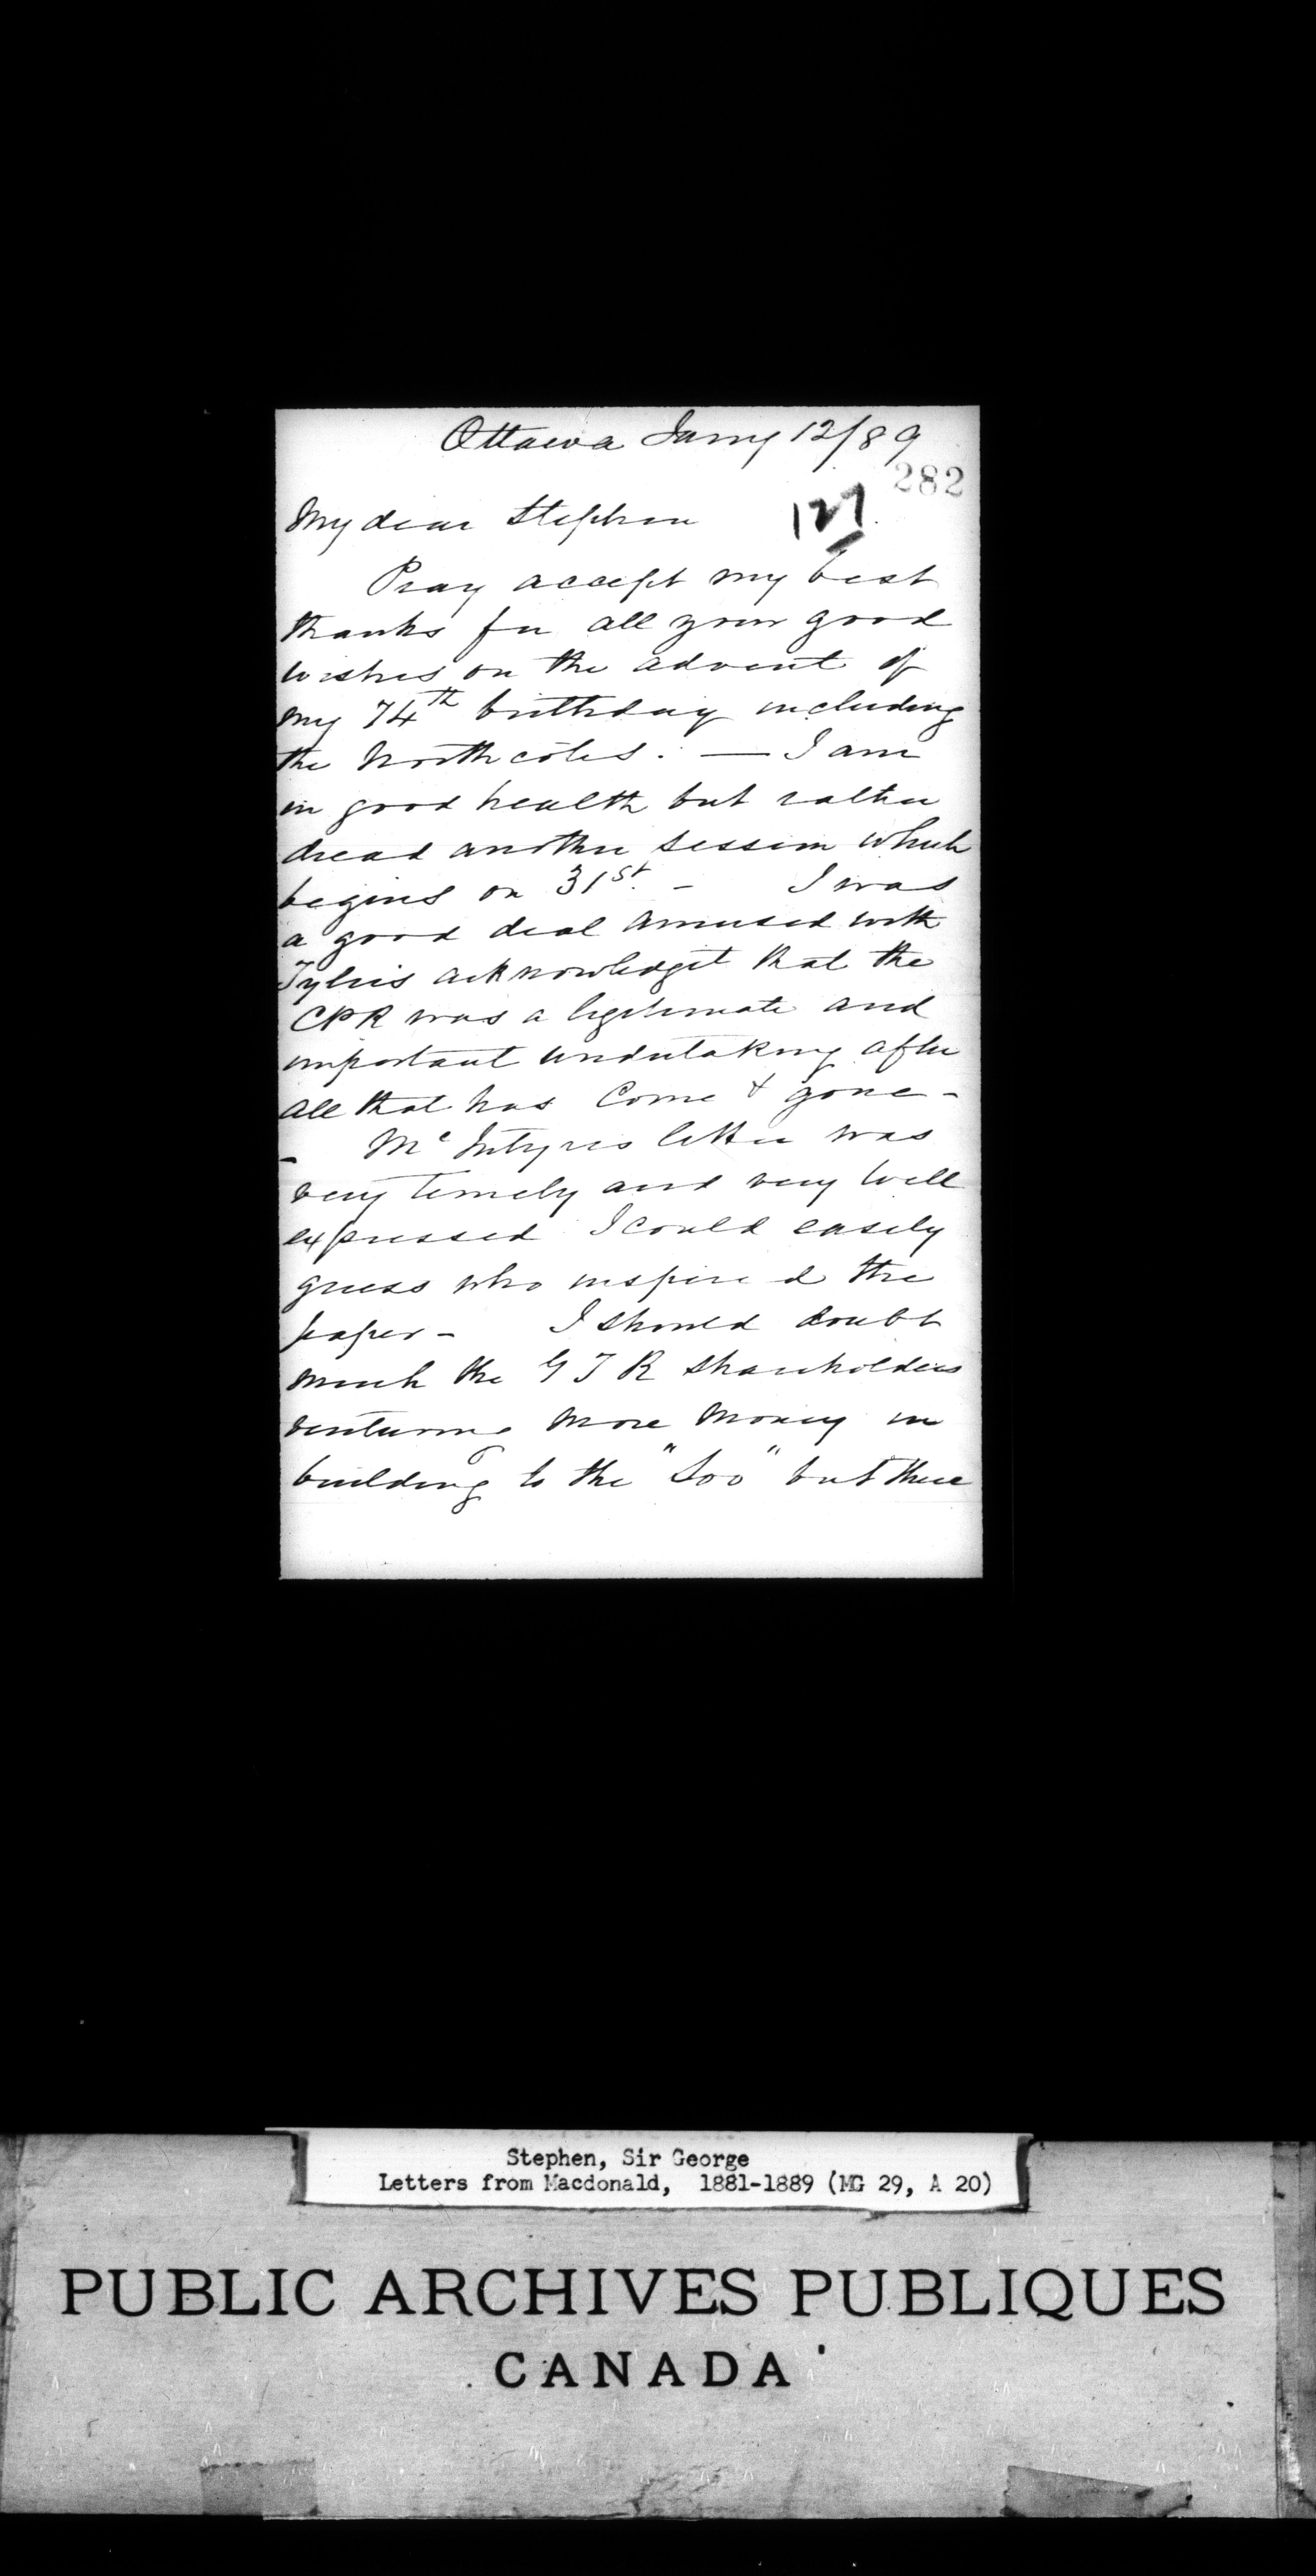 Ottawa Jany 12/89
282
127
My dear Stephen
Pray accept my best
thanks for all your good
wishes on the advent of
my 74th birthday including
the Northcotes. — I am
in good health but rather
dread another session which
begins on 31st. - I was
a good deal amused with
Tyler's acknowledgt that the
CPR was a legitimate and
important undertaking after
all that has come & gone -
- McIntyres letter was
very timely and very well
expressed I could easily
guess who inspired the
paper - I should doubt
much the GTR shareholders
venturing more money in
building to the "Soo" but there
Stephen, Sir George
Letters from Macdonald, 1881-1889 (MG 29, A 20)
PUBLIC ARCHIVES PUBLIQUES
CANADA